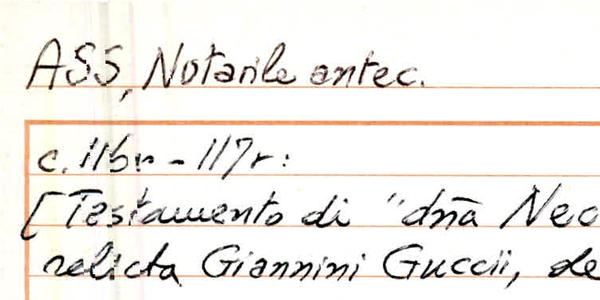 ASS, Notarile antec.
c. 116r - 117r:
[Testamento di "dñā Nec
relicta Giannini Guccii, de